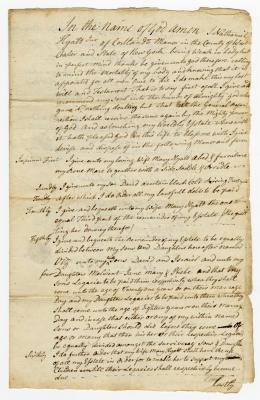 In the name of God amen I Nathaniel
Hyatt Junr of Cortlandt Manor in the County of West
Chester and State of New York being weak in body but
in perfect mind thanks be given unto god therefore calling
to mind the mortality of my body and knowing that it is
appointed for all men once to die do make this my last
will and Testament That is to say first of all I give and
recommend my soul into the hands of almighty god who
gave it nothing doubting but that at the General resur
rection I shall receive the same again by the mighty power
of God And as touching my worldly Estate wherewith
it hath pleased God in this life to bless me with I give
devise and dispose of in the following manner and form
Imprimis First I give unto my loving wife Mary Hyatt a bed & furniture
my one mare to gether with a side Saddle & Bridle
Secondly I give unto my son David a certain black Colt
Thirdly after which I do order all my lawfull debts to be paid
Fourthly I give and bequeath unto my wife Mary Hyatt the one
equal Third part of the remainder of my Estate
Fifthly I give and bequeath the remainder of my Estate to be equally
divided between my Sons and Daughters hereafter named
Viz unto my Sons David and and unto my
Daughters Jane Mary & Phebe and that my
Sons Legacies to be paid them respectively when they shall
come unto the age of Twenty one years or on their marriage
day and my Daughters Legacies to be paid unto them when they
Shall come unto the age of Eighteen years or on their marriage
day and incase that either or any of my within named
Sons or Daughters Should die before they come of
age or marry that then his her or their respective Legacies
be equally divided amongst the surviving Sons & Daughters
Sixthly I do further order that my wife Mary Hyatt Shall have the use
of all my Estate in order for to enable her to support my
Children untill their Legacies shall respectively become
due